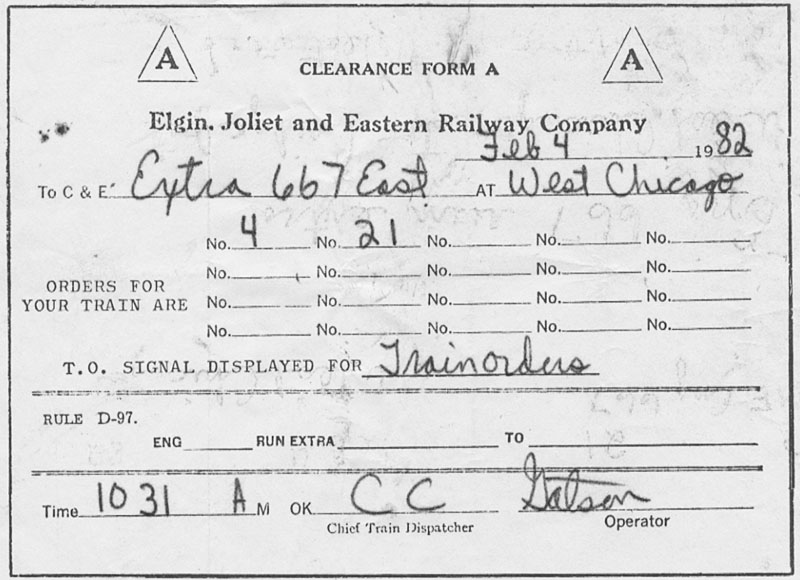 A CLEARANCE FORM A A
Elgin, Joliet and Eastern Railway Company
Feb 4 1982
To C & E: Extra 667 East AT West Chicago
No. 4 No. 21 No. No. No.
No. No. No. No. No.
ORDERS FOR
YOUR TRAIN ARE No. No. No. No. No.
No. No. No. No. No.
T.O. SIGNAL DISPLAYED FOR Trainorders
RULE D-97.
ENG RUN EXTRA TO
Time 10 31 A M OK C C
Chief Train Dispatcher Operator